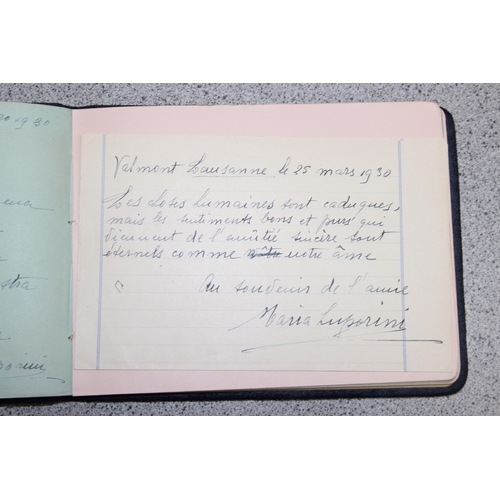 20 1930
Valmont Lausanne, le 25 mars 1930
Les choses humaines sont caduques,
mais les sentiments bons et purs qui
viennent de l'amitié sincère sont
éternels comme notre âme
Au souvenir de l'amie
Maria Luporini